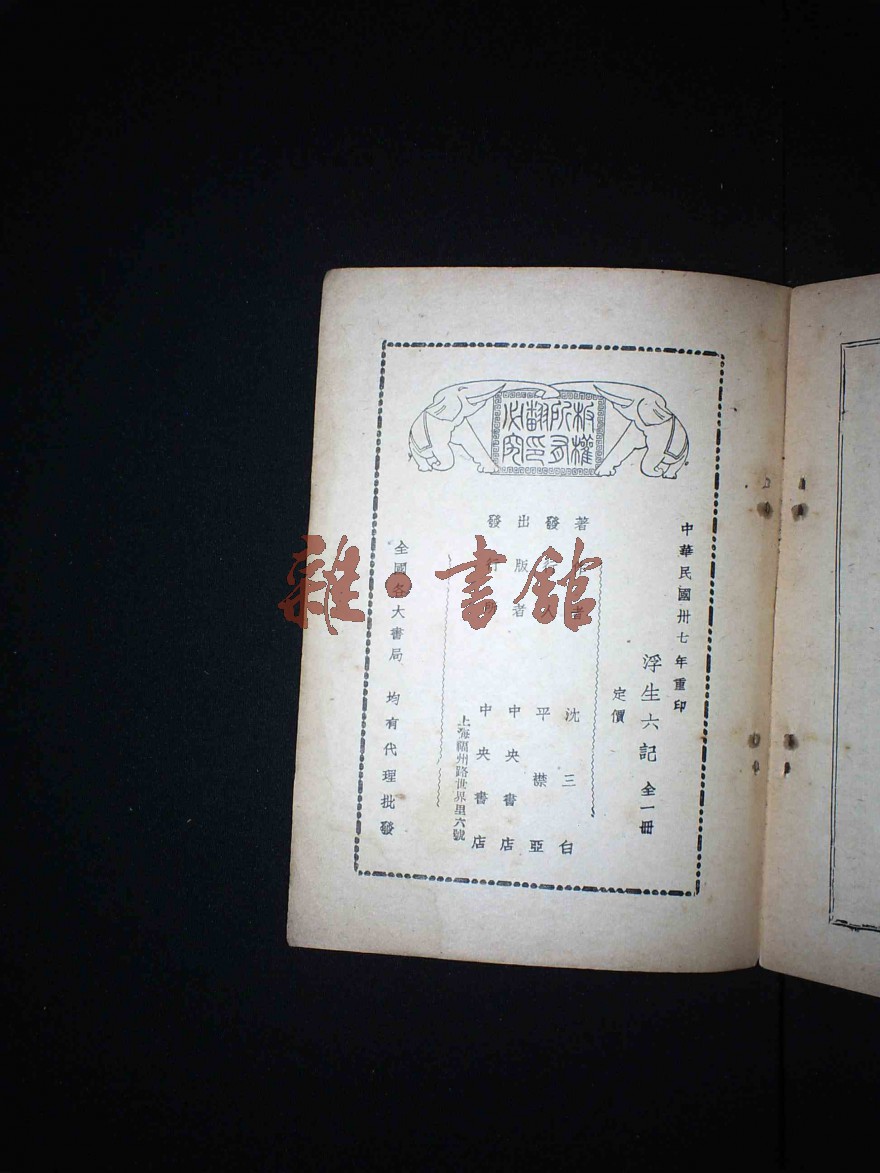 板權
所有
翻印
必究
中華民國卅七年重印
浮生六記 全一冊
定價
著作者 沈三白
發行人 平襟亞
出版者 中央書店
發行所 中央書店
上海福州路世界里六號
全國各大書局 均有代理批發
雜·書館